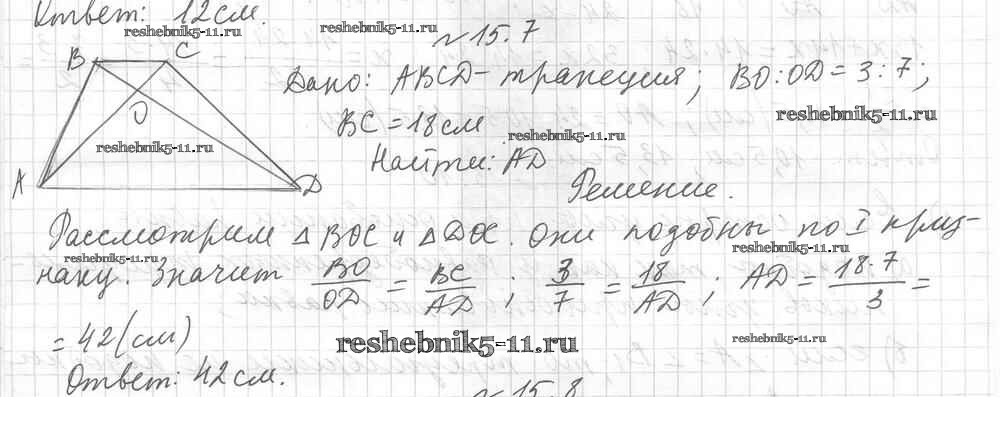 Ответ: 12 см.
reshebnik5-11.ru reshebnik5-11.ru
№15.7
B C
Дано: ABCD - трапеция; BO:OD = 3:7;
O
BC = 18 см
reshebnik5-11.ru
reshebnik5-11.ru
reshebnik5-11.ru
Найти: AD
A D
Решение.
Рассмотрим △ BOC и △ DOC. Они подобны по I приз-
reshebnik5-11.ru
reshebnik5-11.ru
наку. Значит BO/OD = BC/AD ; 3/7 = 18/AD ; AD = 18·7/3 =
= 42 (см)
reshebnik5-11.ru
reshebnik5-11.ru
Ответ: 42 см.
№15.8